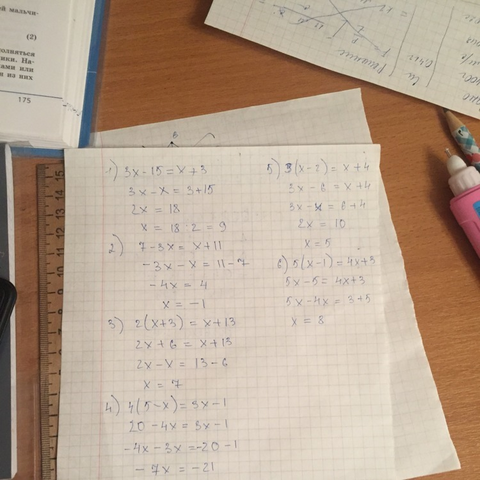 ей мальчи-
(2)
полняться
ики. На-
ами или
и из них
175
Решение
B
1) 3x-15=x+3
3x-x=3+15
2x=18
x=18:2=9
2) 7-3x=x+11
-3x-x=11-7
-4x=4
x=-1
3) 2(x+3)=x+13
2x+6=x+13
2x-x=13-6
x=7
4) 4(5-x)=3x-1
20-4x=3x-1
-4x-3x=-20-1
-7x=-21
5) 3(x-2)=x+4
3x-6=x+4
3x-x=6+4
2x=10
x=5
6) 5(x-1)=4x+3
5x-5=4x+3
5x-4x=3+5
x=8